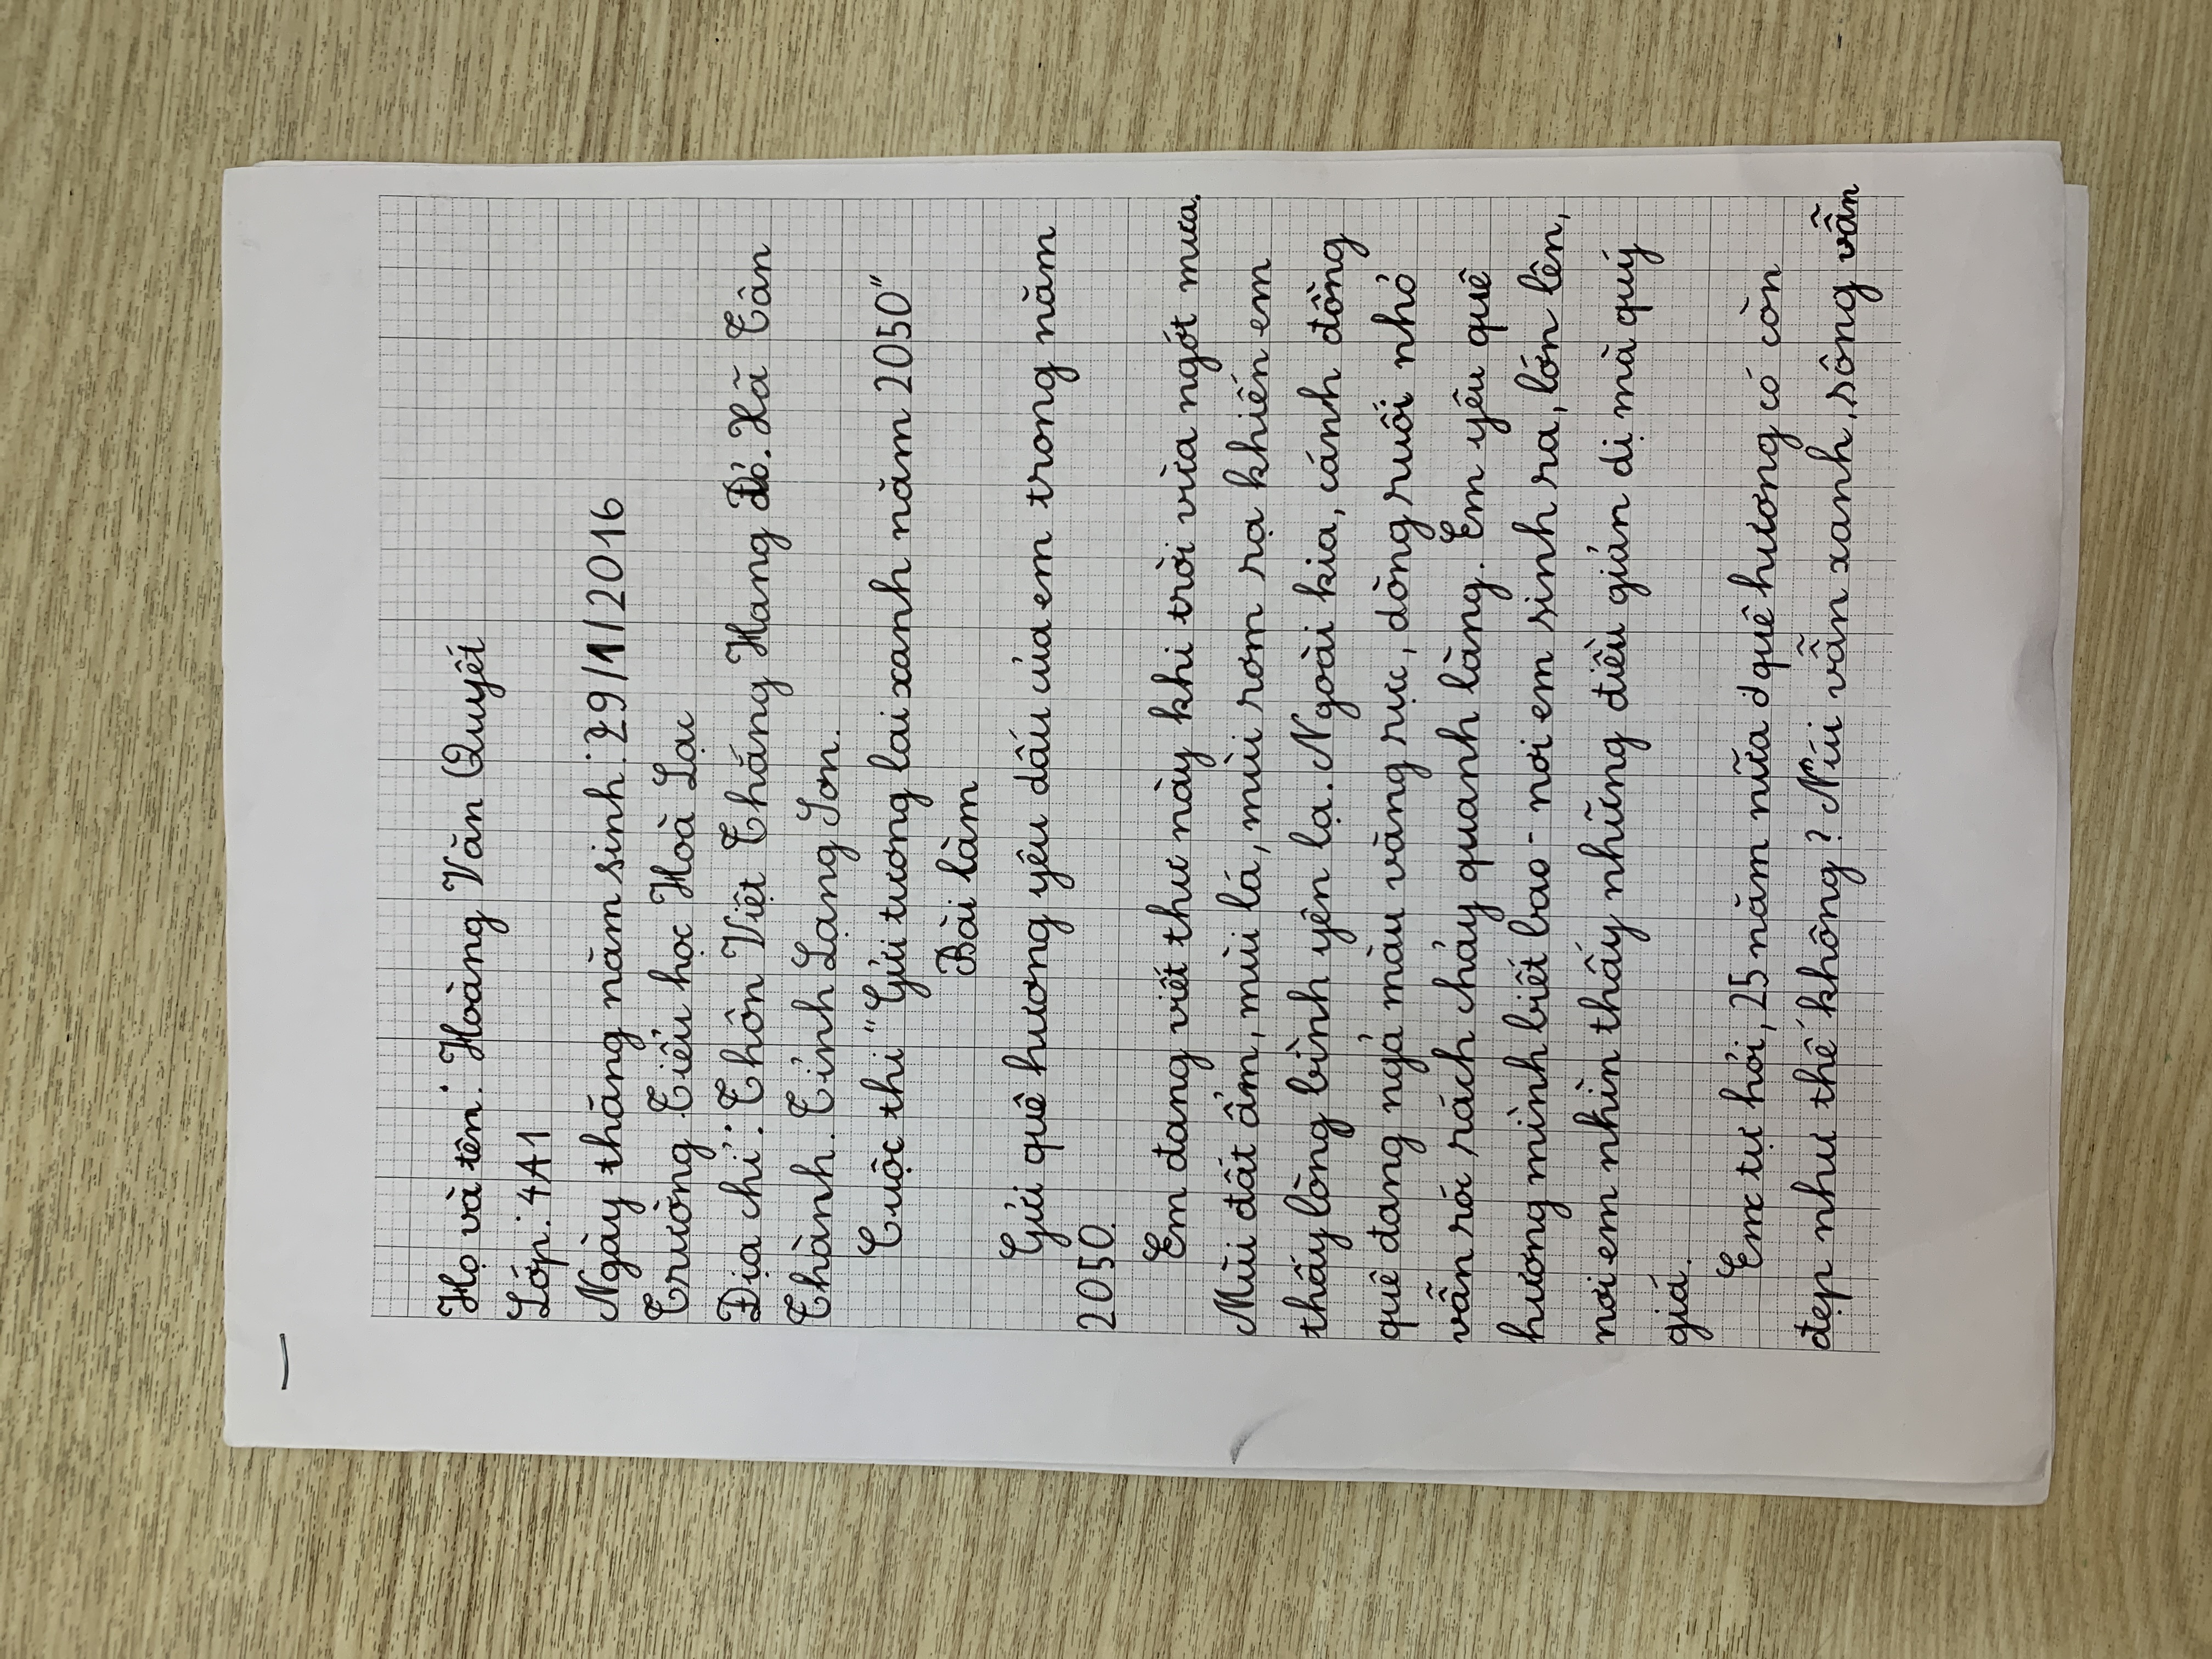 Họ và tên: Hoàng Văn Quyết
Lớp: 4A1
Ngày tháng năm sinh: 29/11/2016
Trường Tiểu học Hoà Lạc
Địa chỉ: Thôn Việt Thắng Hang Đỏ. Xã Tân
Thành. Tỉnh Lạng Sơn.
Cuộc thi "Gửi tương lai xanh năm 2050"
Bài làm
Gửi quê hương yêu dấu của em trong năm
2050.
Em đang viết thư này khi trời vừa ngớt mưa.
Mùi đất ẩm, mùi lá, mùi rơm rạ khiến em
thấy lòng bình yên lạ. Ngoài kia, cánh đồng
quê đang ngả màu vàng rực, dòng ruối nhỏ
vẫn róc rách chảy quanh làng. Em yêu quê
hương mình biết bao - nơi em sinh ra, lớn lên,
nơi em nhìn thấy những điều giản dị mà quý
giá.
Em tự hỏi, 25 năm nữa quê hương có còn
đẹp như thế không? Núi vẫn xanh, sông vẫn